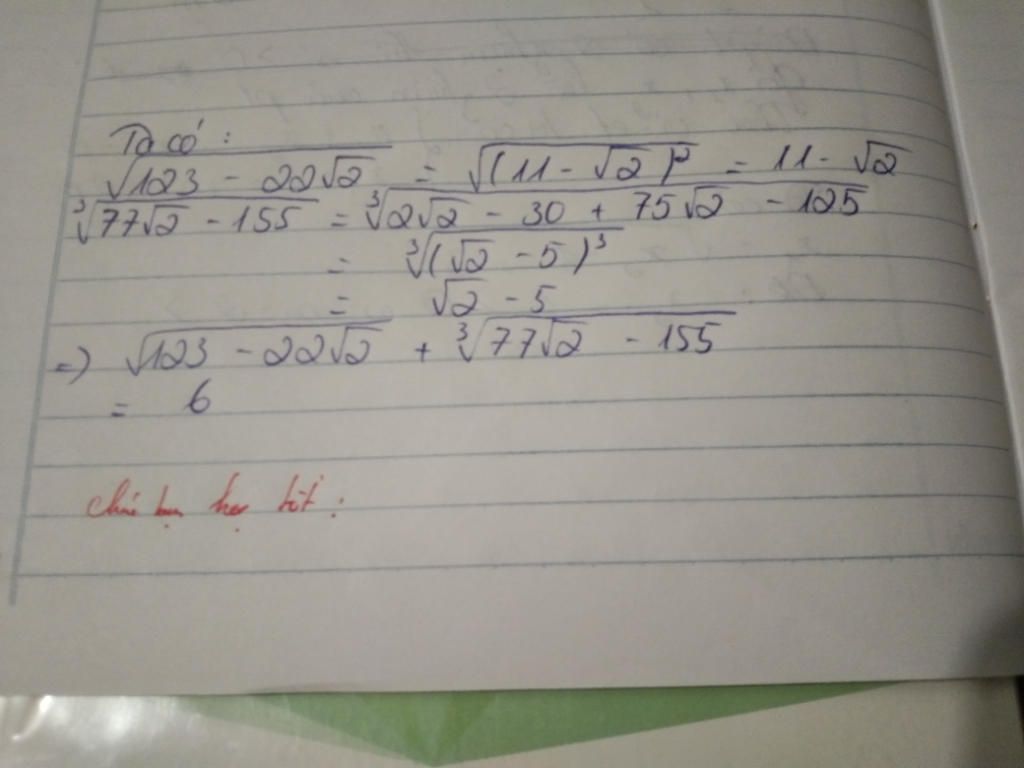 Ta có :
√(123 - 22√2) = √((11 - √2)²) = 11 - √2
∛(77√2 - 155) = ∛(2√2 - 30 + 75√2 - 125)
= ∛((√2 - 5)³)
= √2 - 5
=> √(123 - 22√2) + ∛(77√2 - 155)
= 6
Chúc bạn học tốt :